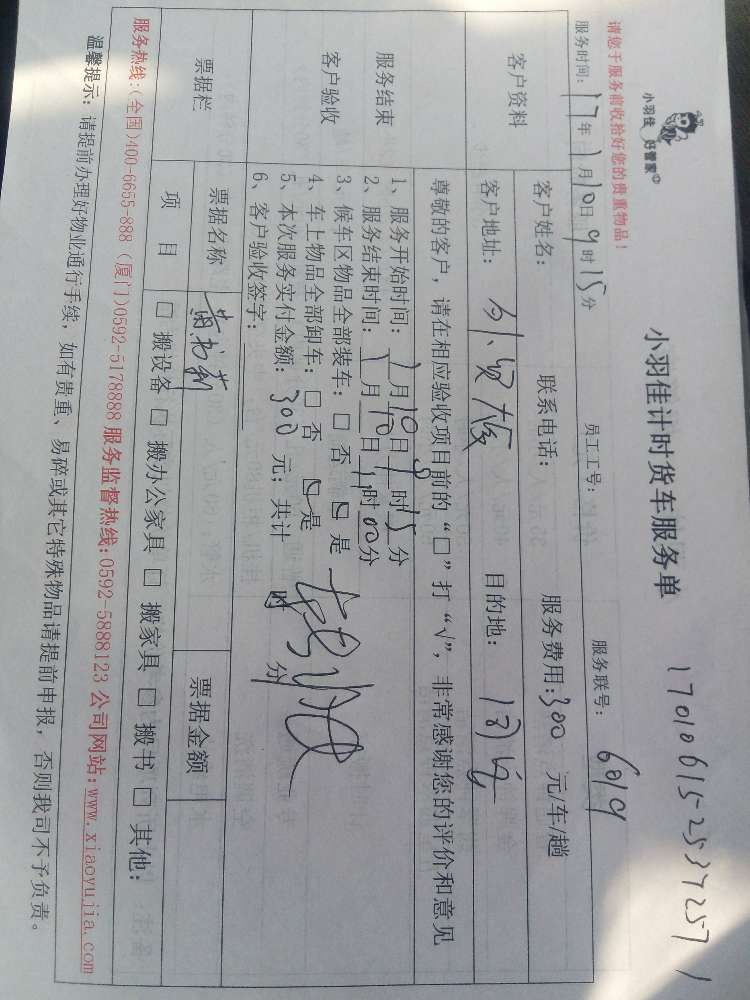 小羽佳 好管家
小羽佳计时货车服务单
请您于服务前收拾好您的贵重物品！
服务时间: 17年1月10日9时15分
员工工号:
服务联号: 6019
客户资料
客户姓名:
联系电话:
服务费用:300 元/车/趟
客户地址:
目的地:
服务结束
客户验收
尊敬的客户，请在相应验收项目前的“□”打“√”，非常感谢您的评价和意见
1、服务开始时间: 1月10日9时15分
2、服务结束时间: 1月10日11时00分
3、候车区物品全部装车: □ 否 ☑ 是
4、车上物品全部卸车: □ 否 ☑ 是
5、本次服务实付金额: 300 元; 共计 时 分
6、客户验收签字:
票据栏
票据名称
票据金额
项 目
□ 搬设备 □ 搬办公家具 □ 搬家具 □ 搬书 □ 其他:
服务热线:(全国)400-6655-888 (厦门)0592-5178888 服务监督热线:0592-5888123 公司网站:www.xiaoyujia.com
温馨提示: 请提前办理好物业通行手续，如有贵重、易碎或其它特殊物品请提前申报，否则我司不予负责。